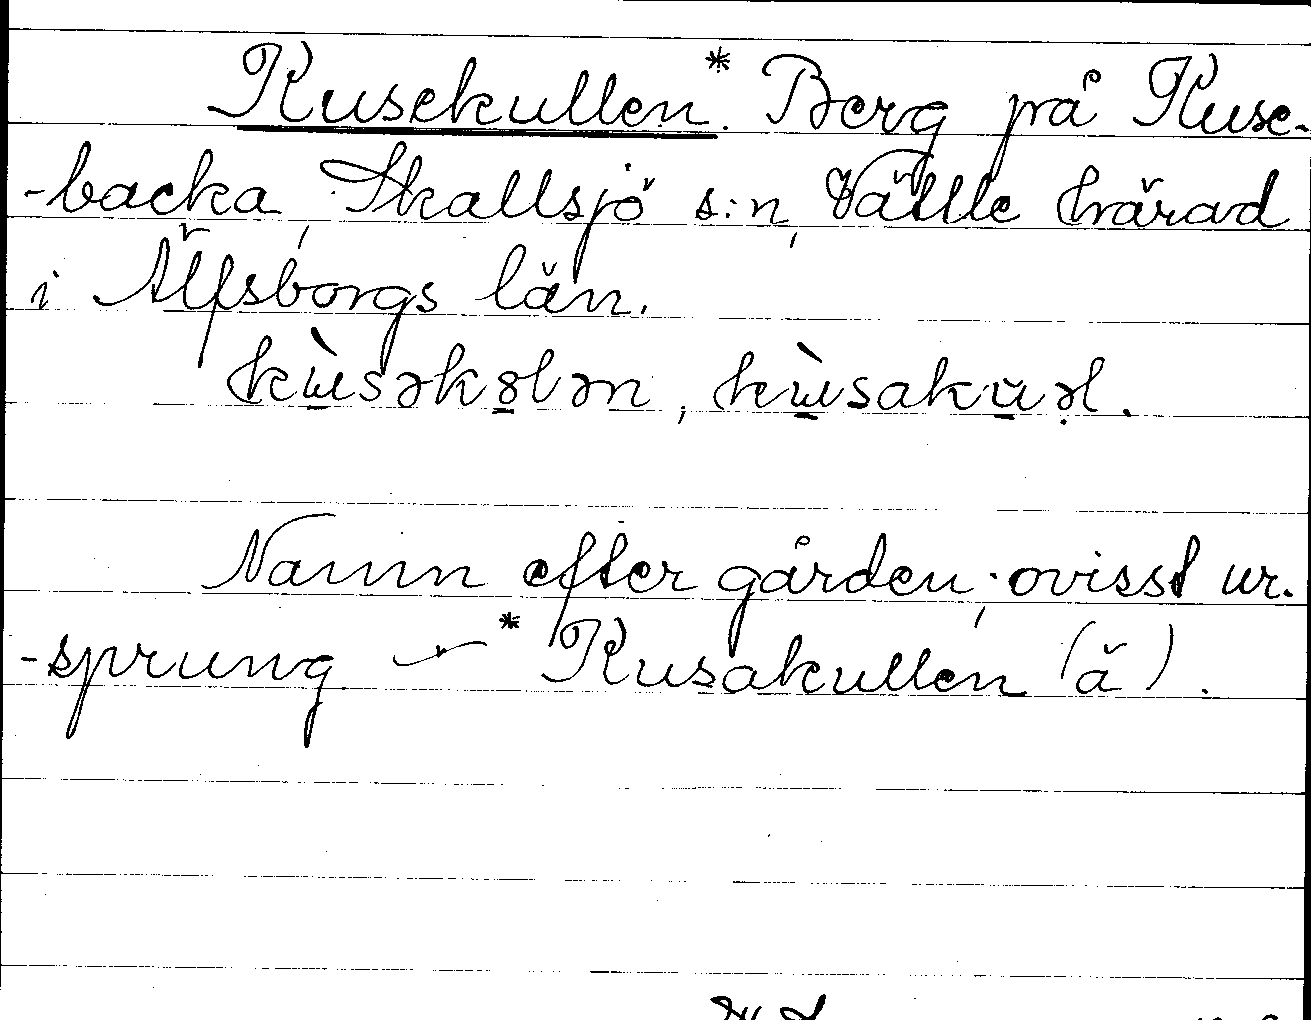 Kusekullen.* Berg på Kuse-
-backa, Skallsjö s:n, Vättle härad
i Älfsborgs län.
kùsəkɷlən, kùsakuəl.
Namn efter gården; ovisst ur-
-sprung – *Kusakullen (ä).